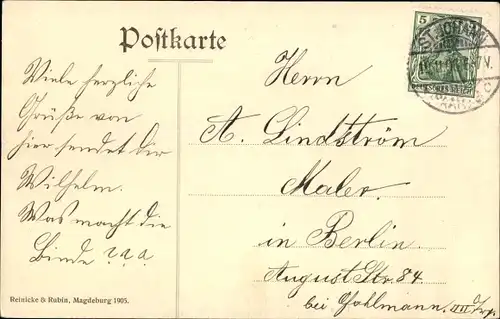 Postkarte
Viele herzliche
Grüße von
hier sendet dir
Wilhelm.
Was macht die
Binde ? ? ?
Reinicke & Rubin, Magdeburg 1905.
5
ST. JOHANN
Herrn
A. Lindström
Maler.
in Berlin.
August Str. 84.
bei Gohlmann. III Trp.